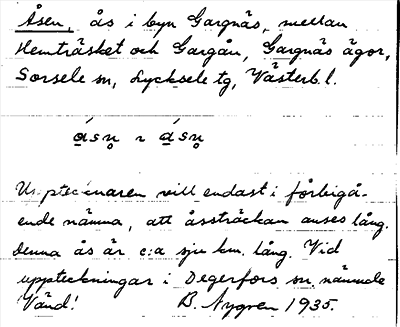 Åsen, ås i byn Gargnäs, mellan
Hemträsket och Gargån, Gargnäs ägor,
Sorsele sn, Lycksele tg, Västerb. l.
ásn̥ ~ ásn̥
Uppteckna̱ren vill endast i förbigå-
ende nämna, att åssträckan anses lång.
Denna ås är c:a sju km. lång. Vid
uppteckningar i Degerfors sn. nämnde
Vänd! B. Nygren 1935.